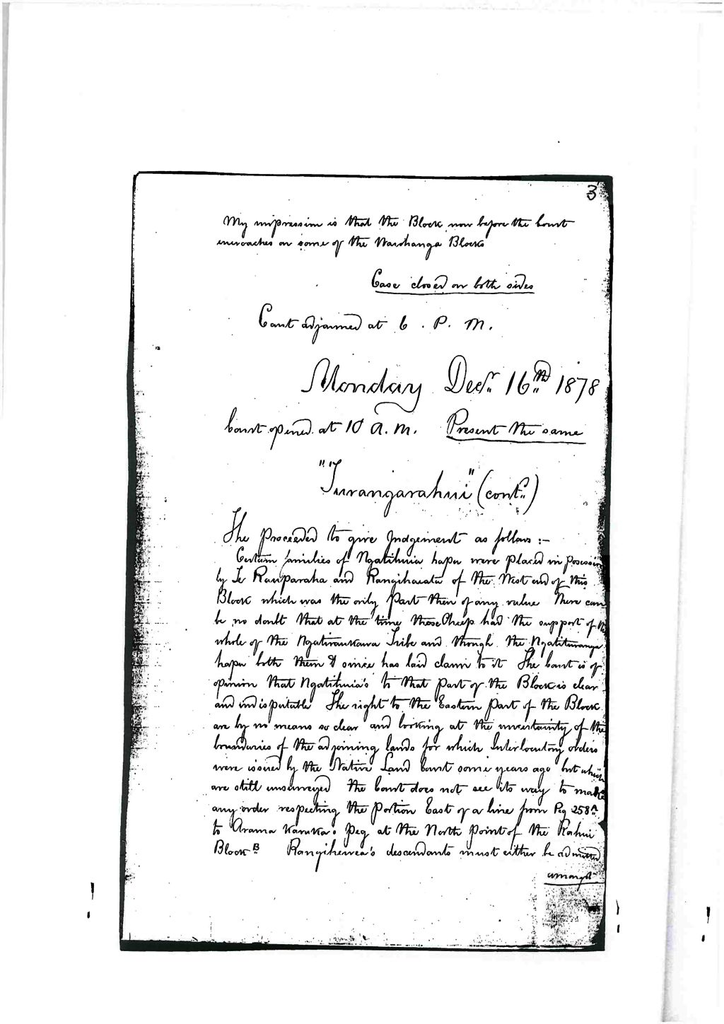 3
My impression is that the Block now before the Court
encroaches on some of the Waiohanga Blocks
Case closed on both sides
Court adjourned at 6 . P. M.
Monday Decr. 16th 1878
Court opened at 10 a.m. Present the same
"Turangarahui" (cont.)
The proceeded to give Judgement as follows :-
Certain families of Ngatihuia hapu were placed in Possession
by Te Rauparaha and Rangihaeata of the West end of this
Block which was the only part then of any value There can
be no doubt that at the time these people had the support of the
whole of the Ngatiraukawa Tribe and though the Ngatituranga
hapu both then & since has laid claim to it The Court is of
opinion that Ngatihuia's to that part of the Block is clear
and indisputable The right to the Eastern part of the Block
are by no means so clear and looking at the uncertainty of the
boundaries of the adjoining lands for which Interlocutory orders
were issued by the Native Land Court some years ago but which
are still unsurveyed the Court does not see its way to make
any order respecting the portion East of a line from Peg 258A
to Arama Karaka's peg at the North point of the Rahui
Block B Rangihewea's descendants must either be admitted
amongst